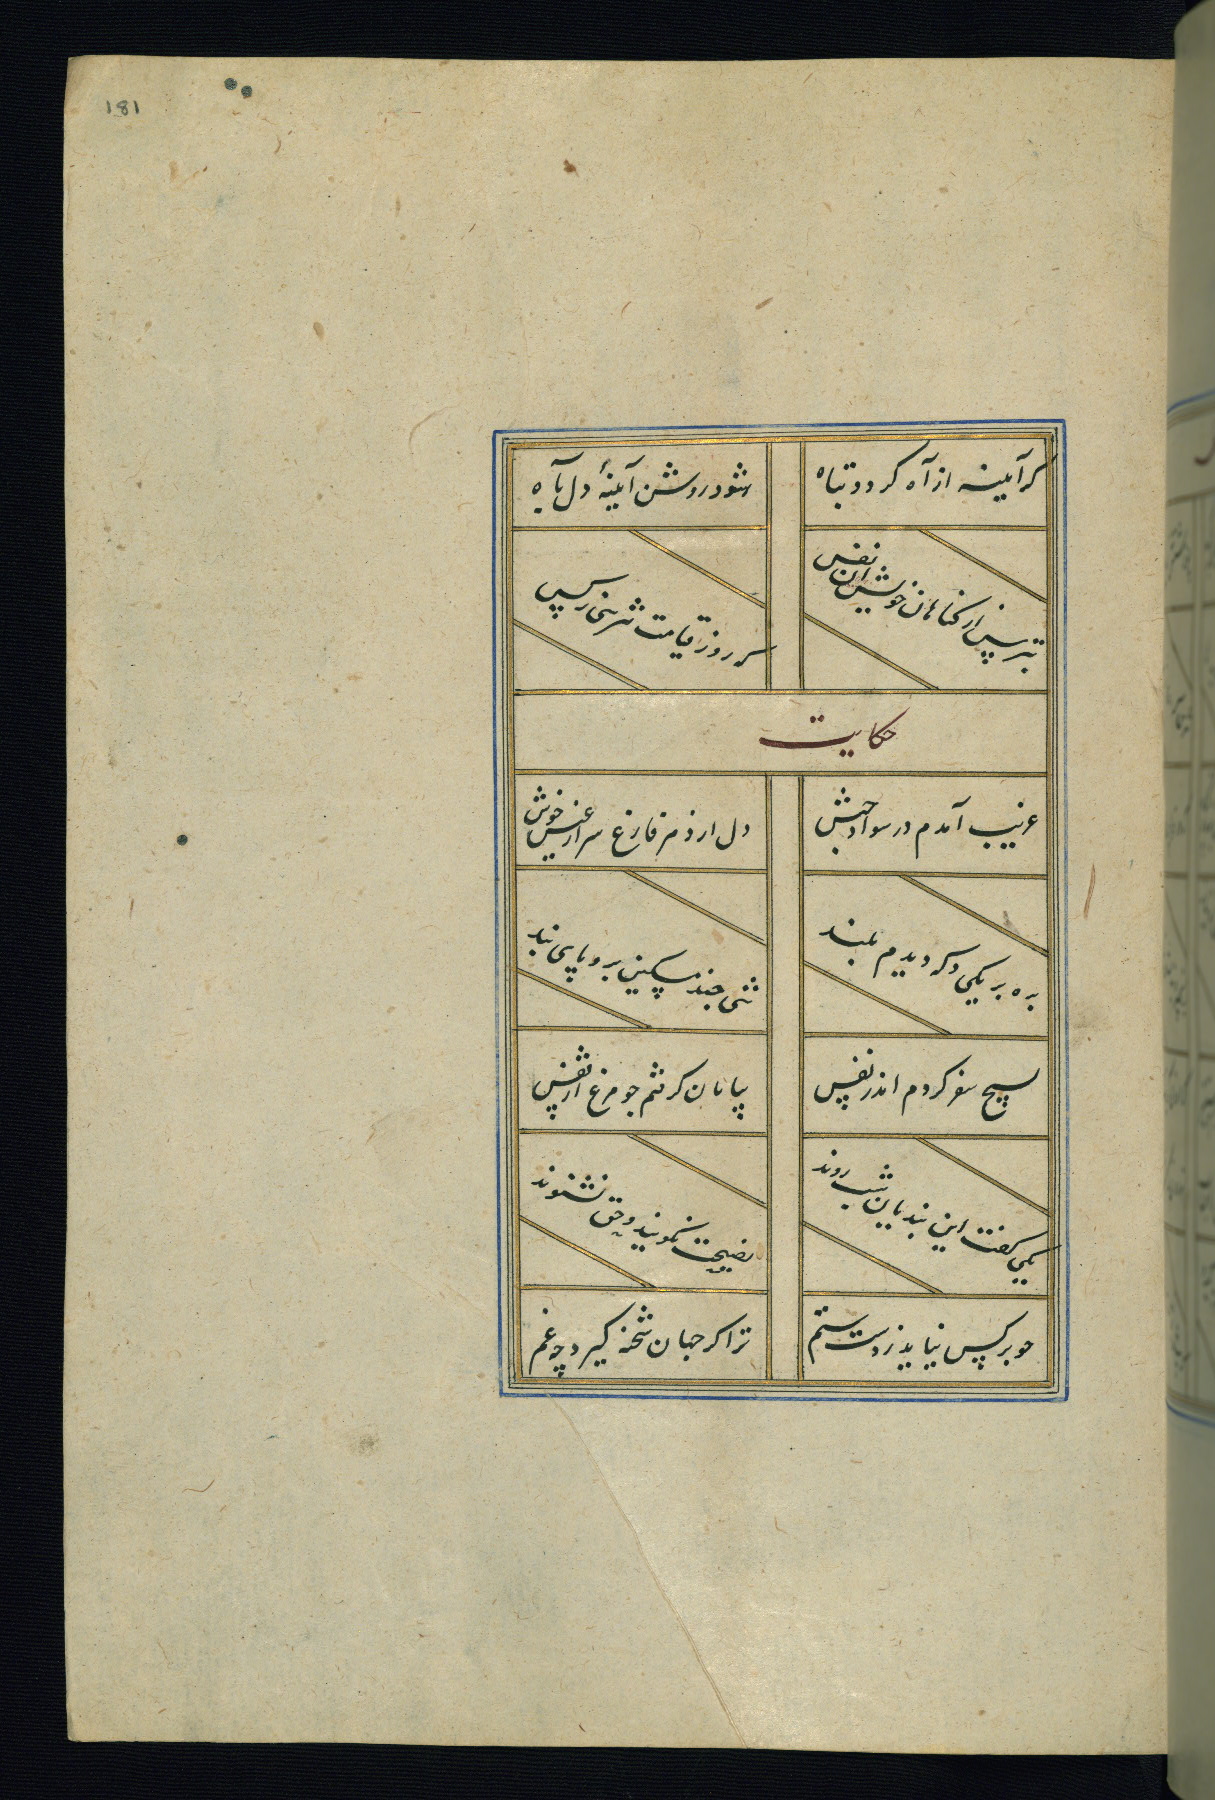 181
کر آیینه از آه کردد تباه
شود روشن آیینهٔ دل بآه
بترس از کناهان خویش این نفس
که روز قیامت نترسی ز کس
حکایت
غریب آمدم در سواد حبش
دل از دهر فارغ سر از عیش خوش
بره بر یکی دکه دیدم بلند
تنی چند مسکین برو پای بند
بسیج سفر کردم اندر نفس
بیابان کرفتم چو مرغ از قفس
یکی کفت این بندیان شب روند
نصیحت نکیرند و حق نشنوند
چو بر کس نیاید ز دست ستم
ترا کر جهان شحنه کیرد چه غم